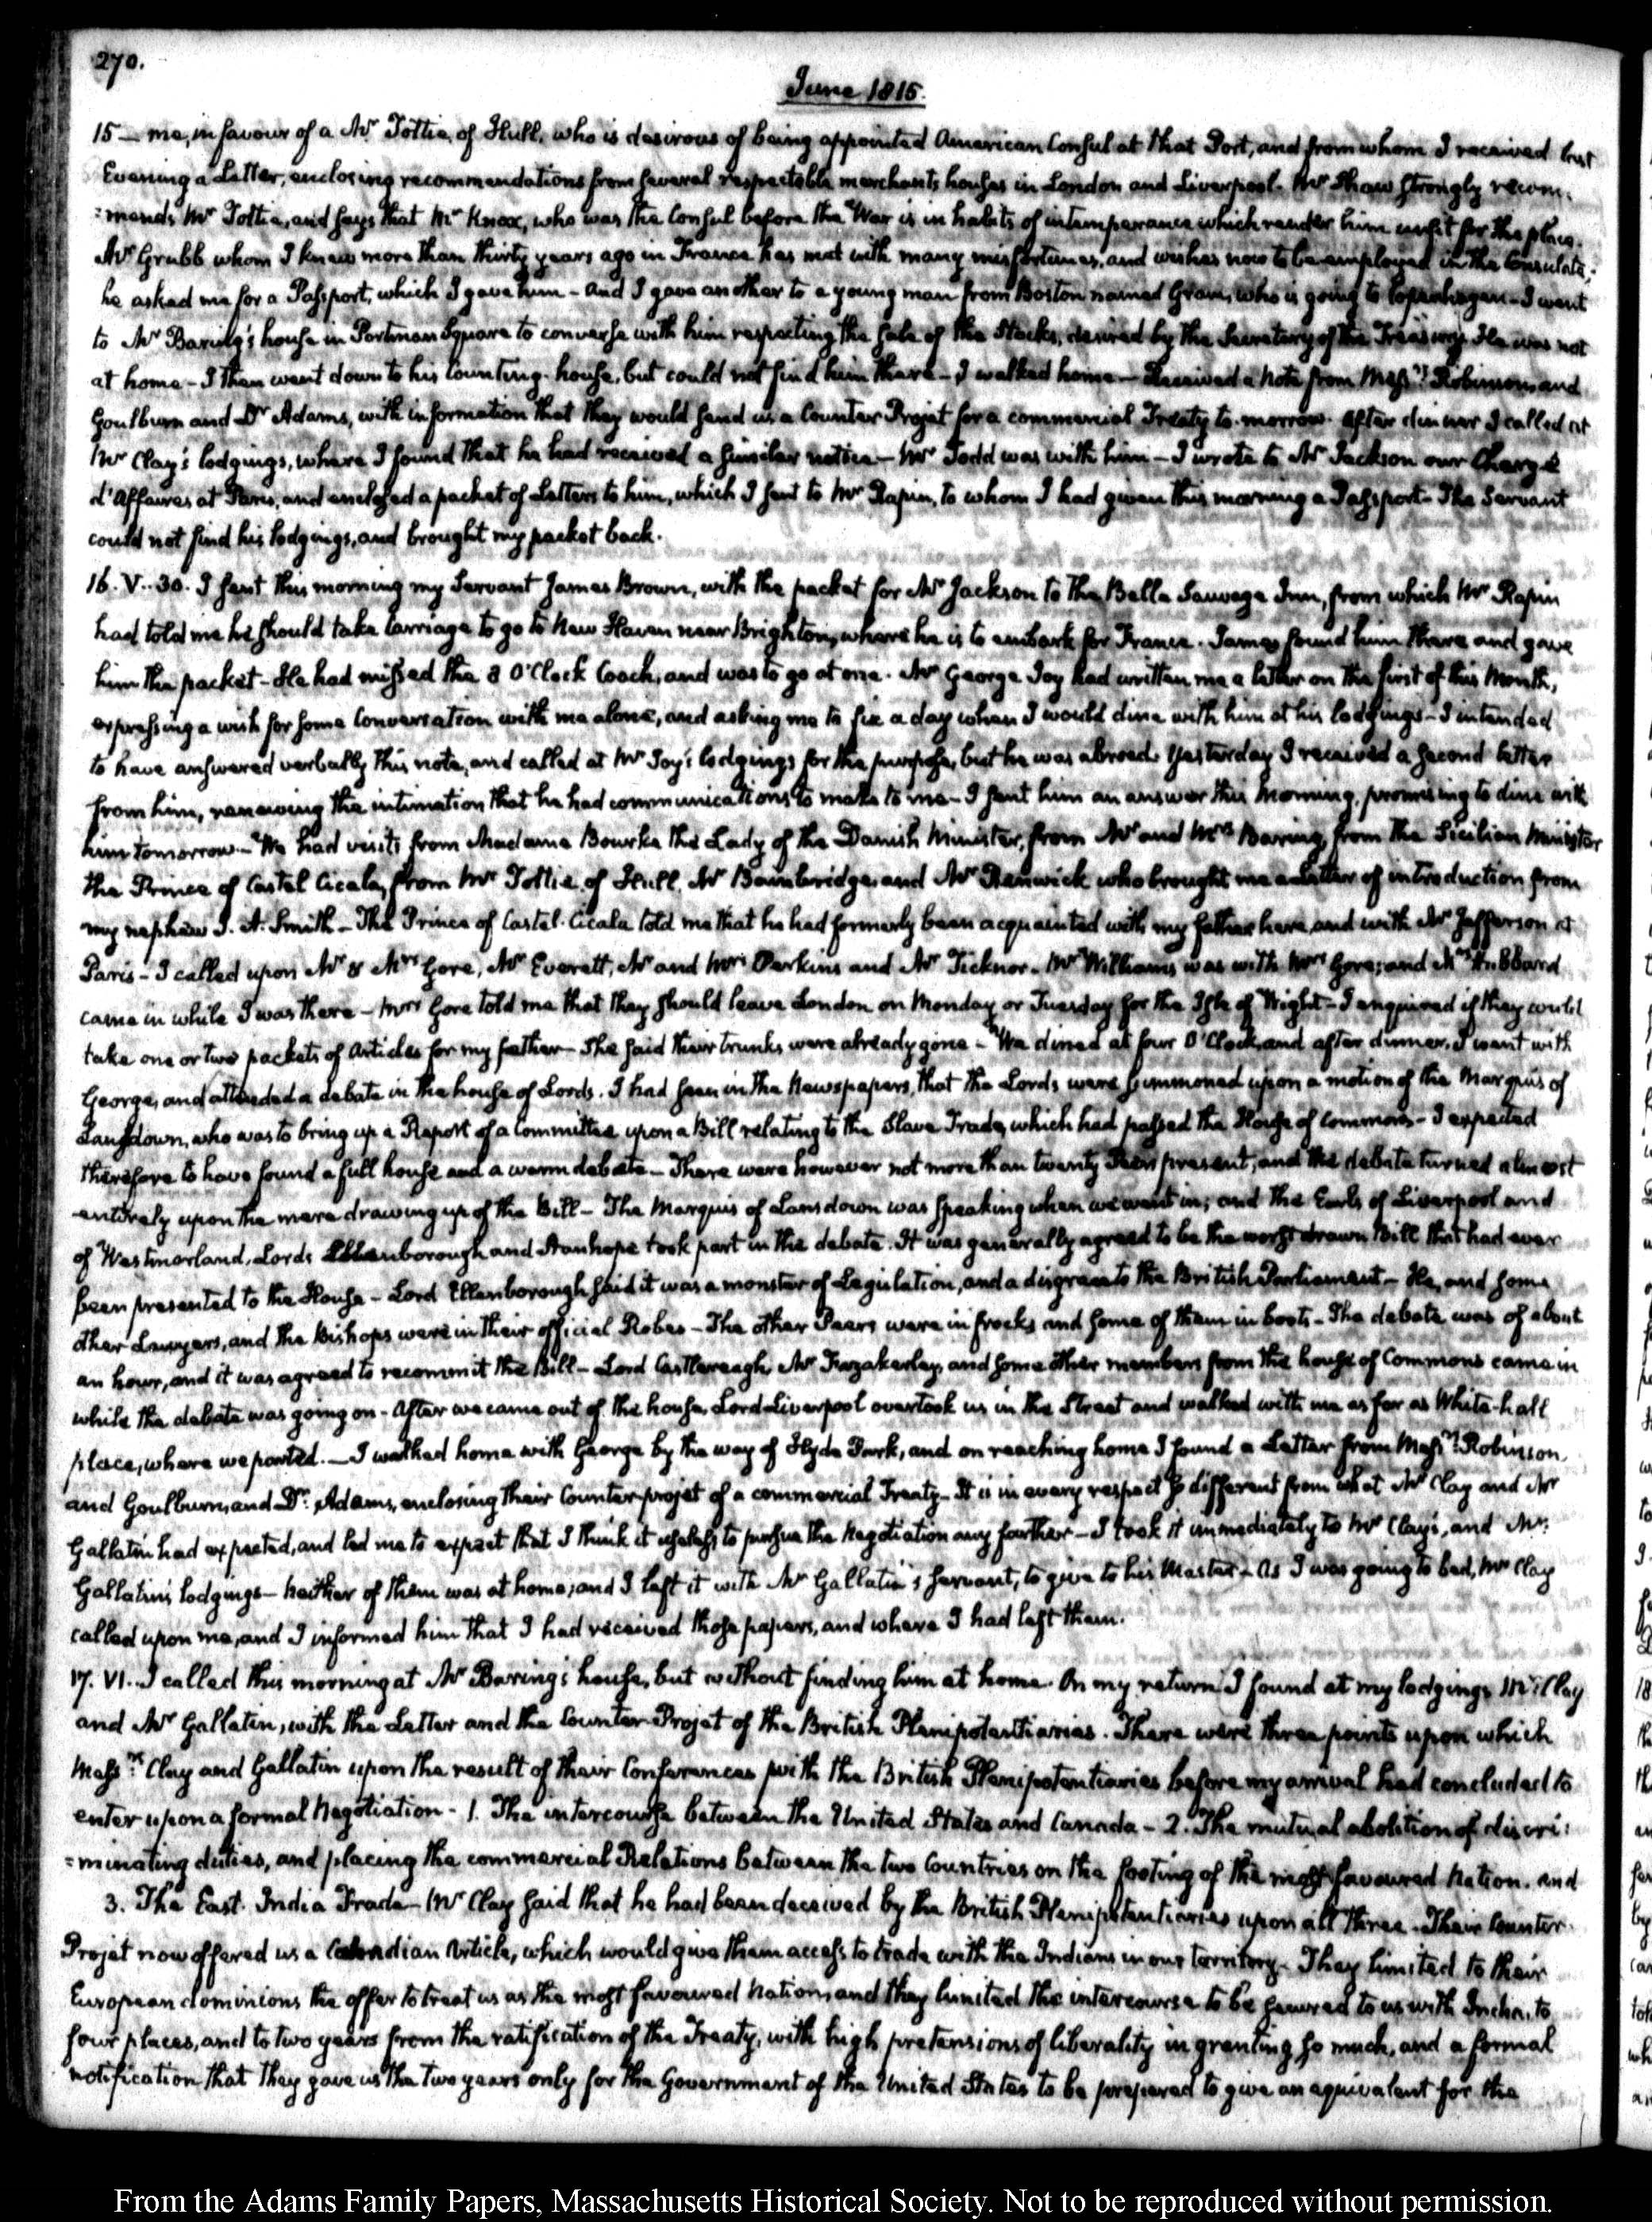 270.
June 1815.
15— me, in favour of a Mr. Tottie, of Hull, who is desirous of being appointed American Consul at that Port, and from whom I received last
Evening a Letter, enclosing recommendations from several respectable merchants houses in London and Liverpool. Mr Shaw strongly recom:
:mends Mr Tottie, and says that Mr Knox, who was the Consul before the War is in habits of intemperance which render him unfit for the place.
Mr Grubb whom I knew more than thirty years ago in France has met with many misfortunes, and wishes now to be employed in the Consulate;
he asked me for a Passport, which I gave him - and I gave another to a young man from Boston named Gram, who is going to Copenhagen. I went
to Mr Baring's house in Portman Square to converse with him respecting the sale of the Stocks, desired by the Secretary of the Treasury. He was not
at home - I then went down to his Counting-house, but could not find him there - I walked home - Received a Note from Messrs. Robinson and
Goulburn and Dr Adams, with information that they would send us a Counter Projet for a commercial Treaty to-morrow. After dinner I called at
Mr Clay's lodgings, where I found that he had received a similar notice - Mr Todd was with him - I wrote to Mr Jackson our Chargé
d'Affaires at Paris, and enclosed a packet of Letters to him, which I sent to Mr Rapin, to whom I had given this morning a Passport - The Servant
could not find his lodgings, and brought my packet back.
16. V..30. I sent this morning my Servant James Brown, with the packet for Mr Jackson to the Bella Sauvage Inn, from which Mr Rapin
had told me he should take carriage to go to New Haven near Brighton, where he is to embark for France. James found him there and gave
him the packet - He had missed the 8 O'Clock Coach, and was to go at one. Mr George Joy had written me a letter on the first of this Month,
expressing a wish for some Conversation with me alone, and asking me to fix a day when I would dine with him at his lodgings - I intended
to have answered verbally this note, and called at Mr Joy's lodgings for the purpose, but he was abroad. Yesterday I received a second letter
from him, renewing the intimation that he had communications to make to me - I sent him an answer this Morning, promising to dine with
him tomorrow - We had visits from Madame Bourke the Lady of the Danish Minister, from Mr and Mrs Baring, from the Sicilian Minister
the Prince of Castel Cicala, from Mr Tottie of Hull, Mr Bainbridge, and Mr Renwick who brought me a Letter of introduction from
my nephew J. A. Smith - The Prince of Castel-Cicala told me that he had formerly been acquainted with my father here, and with Mr Jefferson at
Paris - I called upon Mr & Mrs Gore, Mr Everett, Mr and Mrs Perkins and Mr Ticknor. Mr Williams was with Mrs Gore; and Mrs Hubbard
came in while I was there - Mrs Gore told me that they should leave London on Monday or Tuesday for the Isle of Wight - I enquired if they could
take one or two packets of Articles for my father - She said their trunks were already gone - We dined at four O'Clock, and after dinner, I went with
George, and attended a debate in the house of Lords. I had seen in the Newspapers, that the Lords were summoned upon a motion of the Marquis of
Lansdown, who was to bring up a Report of a Committee upon a Bill relating to the Slave Trade, which had passed the House of Commons - I expected
therefore to have found a full house and a warm debate - There were however not more than twenty Peers present, and the debate turned almost
entirely upon the mere drawing up of the Bill - The Marquis of Lansdown was speaking when we went in; and the Earls of Liverpool and
of Westmorland, Lords Ellenborough and Stanhope took part in the debate. It was generally agreed to be the worst drawn Bill that had ever
been presented to the House - Lord Ellenborough said it was a monster of Legislation, and a disgrace to the British Parliament - He, and some
other Lawyers, and the Bishops were in their official Robes - The other Peers were in frocks and some of them in boots - The debate was of about
an hour, and it was agreed to recommit the Bill - Lord Castlereagh, Mr Fazakerley, and some other members from the house of Commons came in
while the debate was going on - After we came out of the house, Lord Liverpool overtook us in the Street and walked with me as far as White-hall
place, where we parted. - I walked home with George by the way of Hyde Park, and on reaching home I found a Letter from Messrs. Robinson,
and Goulburn, and Dr. Adams, enclosing their Counter-projet of a commercial Treaty - It is in every respect so different from what Mr Clay and Mr
Gallatin had expected, and led me to expect that I think it useless to pursue the Negotiation any further - I took it immediately to Mr Clay's, and Mr.
Gallatin's lodgings - Neither of them was at home; and I left it with Mr Gallatin's servant, to give to his Master - As I was going to bed, Mr Clay
called upon me, and I informed him that I had received those papers, and where I had left them.
17. VI. I called this morning at Mr Baring's house, but without finding him at home. On my return I found at my lodgings Mr. Clay
and Mr Gallatin, with the Letter and the Counter-Projet of the British Plenipotentiaries. There were three points upon which
Messrs. Clay and Gallatin upon the result of their Conferences with the British Plenipotentiaries before my arrival had concluded to
enter upon a formal Negotiation - 1. The intercourse between the United States and Canada - 2. The mutual abolition of discri:
:minating duties, and placing the commercial Relations between the two Countries on the footing of the most favoured Nation. and
3. The East India Trade - Mr Clay said that he had been deceived by the British Plenipotentiaries upon all three - Their Counter-
Projet now offered us a Canadian Article, which would give them access to trade with the Indians in our territory - They limited to their
European dominions the offer to treat us as the most favoured Nation, and they limited the intercourse to be secured to us with India, to
four places, and to two years from the ratification of the Treaty, with high pretensions of liberality in granting so much, and a formal
notification that they gave us the two years only for the Government of the United States to be prepared to give an equivalent for the
From the Adams Family Papers, Massachusetts Historical Society. Not to be reproduced without permission.